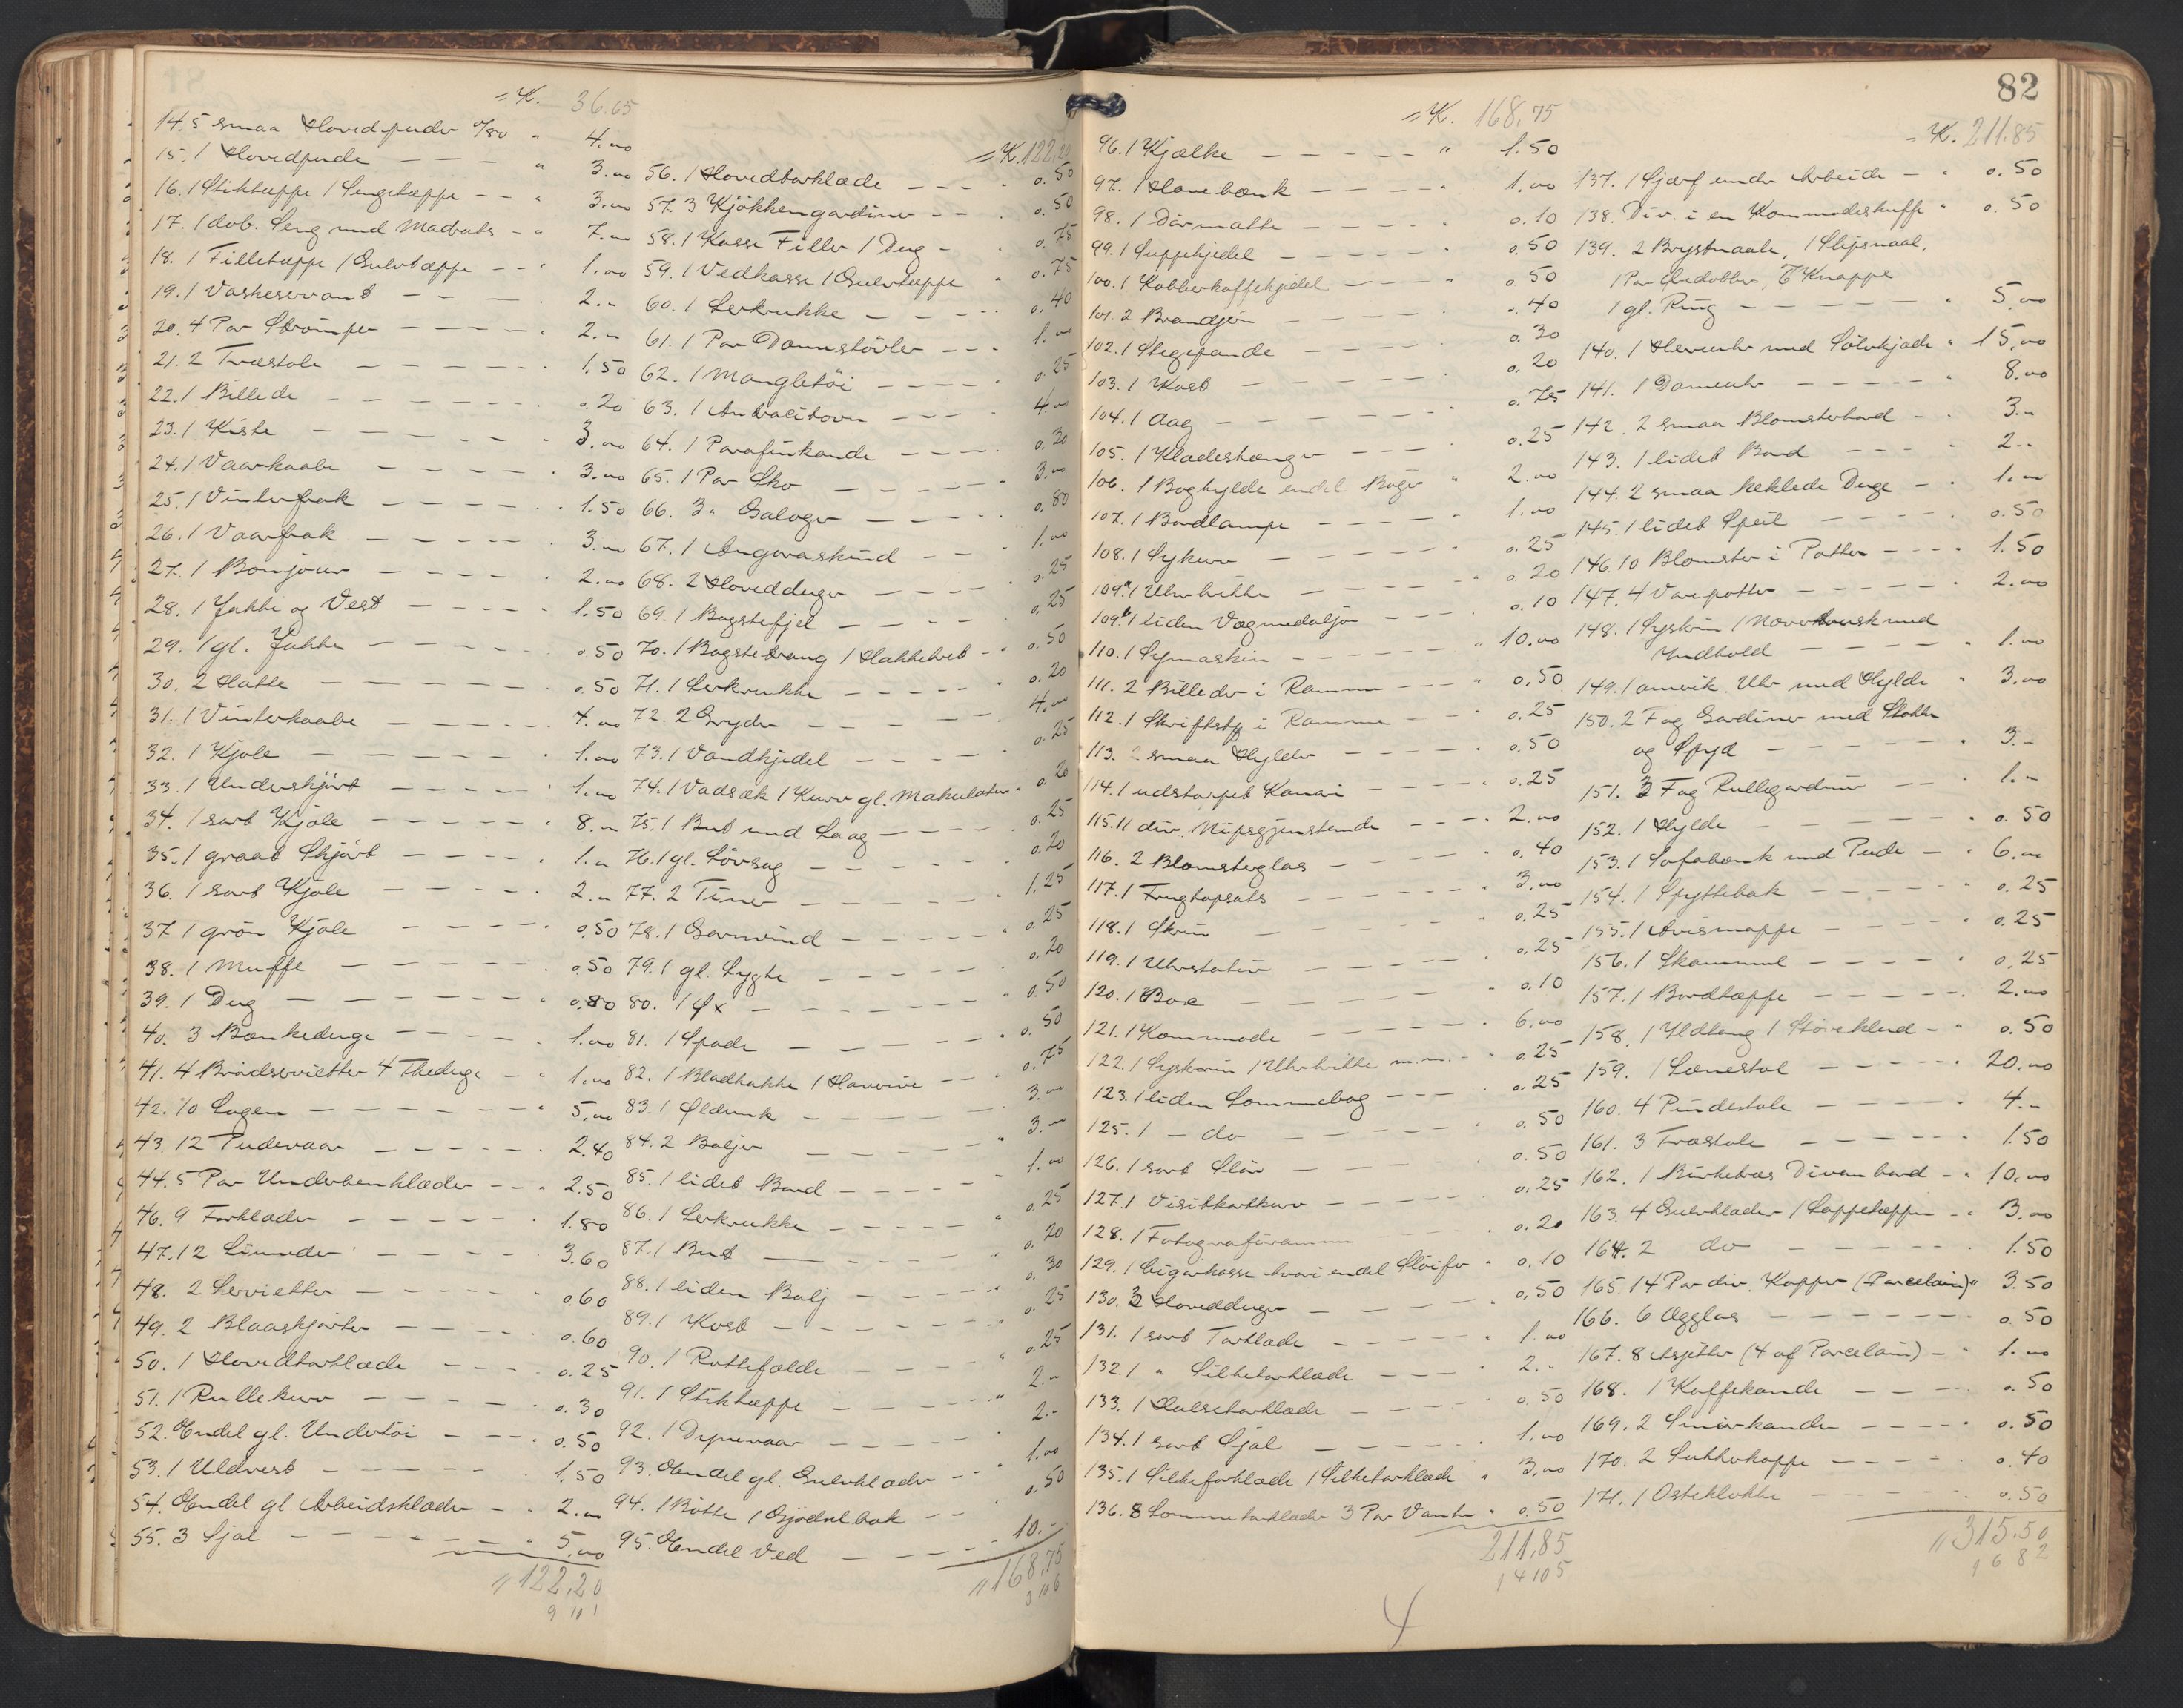 = K. 36.65
14. 5 smaa Hovedpuder 0/80 " 4.00
15. 1 Hovedpude — — — " 3.00
16. 1 Stiktæppe 1 Sengetæppe — — " 3.00
17. 1 dob. Seng med Madrats — " 7.00
18. 1 Filletæppe 1 Gulvtæppe — — " 1.00
19. 1 Vaskeservant — — — 2.-
20. 4 Par Strømper — — — — 2.-
21. 2 Træstole — — — — 1.50
22. 1 Billede — — — — 0.20
23. 1 Kiste — — — — 3.00
24. 1 Vaarkaabe — — — — 3.00
25. 1 Vinterfrak — — — — 1.50
26. 1 Vaarfrak — — — — 3.00
27. 1 Bonjour — — — — 2.00
28. 1 Jakke og Vest — — — — 1.50
29. 1 gl. Jakke — — — — 0.50
30. 2 Hatte — — — — 0.50
31. 1 Vinterkaabe — — — — 4.00
32. 1 Kjole — — — — 1.00
33. 1 Underskjørt — — — — 1.00
34. 1 sort Kjole — — — — 8.00
35. 1 graat Skjørt — — — — 1.00
36. 1 sort Kjole — — — — 2.00
37. 1 grøn Kjole — — — — 0.50
38. 1 Muffe — — — — 0.50
39. 1 Dug — — — — 0.80
40. 3 Bænkeduge — — — 1.00
41. 4 Brødservietter 4 Theduge — " 1.00
42. 10 Lagen — — — — 5.00
43. 12 Pudevaar — — — — 2.40
44. 5 Par Underbenklæder — — 2.50
46. 9 Forklæder — — — — 1.80
47. 12 Linneder — — — — 3.60
48. 2 Servietter — — — — 0.60
49. 2 Blaaskjorter — — — — 0.60
50. 1 Hovedtørklæde — — — 0.25
51. 1 Rullekurv — — — — 0.30
52. Endel gl. Undertøi — — — 0.50
53. 1 Uldvest — — — — 1.50
54. Endel gl. Arbeidsklæder — — 2.00
55. 3 Sjal — — — — 5.00
" 122.20
9 10 1
= K. 122.20
56. 1 Hovedtørklæde — — — 0.50
57. 3 Kjøkkengardiner — — 0.50
58. 1 Kasse Filler 1 Dug — 0.75
59. 1 Vedkasse 1 Gulvtæppe " 0.75
60. 1 Lerkrukke — — — 0.40
61. 1 Par Damestøvler — — — 1.00
62. 1 Mangletøi — — — — 0.25
63. 1 Antracitovn — — — 4.00
64. 1 Parafinkande — — — 0.20
65. 1 Par Sko — — — — 3.00
66. 3 " Galoger — — — 0.80
67. 1 Angoraskind — — 1.00
68. 2 Hovedduger — — — 0.25
69. 1 Bagstefjel — — — — 0.25
70. 1 Bagstetraug 1 Hakkebret — " 0.50
71. 1 Lerkrukke — — — — 0.20
72. 2 Gryder — — — — 4.00
73. 1 Vandkjedel — — — 0.25
74. 1 Vadsæk 1 Kurv gl. Makulatur " 0.20
75. 1 But med Laag — — — 0.25
76. 1 gl. Løvsag — — — 0.20
77. 2 Tiner — — — — 1.25
78. 1 Garnvind — — — — 0.25
79. 1 gl. Lygte — — — — 0.20
80. 1 Øx — — — — 0.50
81. 1 Spade — — — — 0.50
82. 1 Bladhakke 1 Haverive — — 0.75
83. 1 Øldunk — — — — 3.00
84. 2 Baljer — — — — 3.00
85. 1 lidet Bord — — — — 1.00
86. 1 Lerkrukke — — — — 0.25
87. 1 But — — — — 0.20
88. 1 liden Balj — — — — 0.30
89. 1 Kost — — — — 0.25
90. 1 Rottefælde — — — 0.25
91. 1 Stiktæppe — — — — 2.-
92. 1 Dynevaar — — — — 2.-
93. Endel gl. Gulvklæder — — 1.00
94. 1 Bøtte 1 Gjødselbak — — 0.50
95. Endel Ved — — — — 10.-
" 168.75
3 10 6
= K. 168.75
96. 1 Kjælke — — — — " 1.50
97. 1 Havebænk — — — — 1.00
98. 1 Dørmatte — — — — 0.10
99. 1 Suppekjedel — — — — 0.50
100. 1 Kobberkaffekjedel — — — 0.50
101. 2 Brandjern — — — — 0.40
102. 1 Stegepande — — — — 0.30
103. 1 Kost — — — — 0.20
104. 1 Aag — — — — 0.75
105. 1 Klædeshænger — — — 0.25
106. 1 Boghylde endel Bøger " 2.00
107. 1 Bordlampe — — — — 1.00
108. 1 Sykurv — — — — 0.25
109a 1 Uhrkikke — — — — 0.20
109b 1 liden Vægmedaljon — — 0.10
110. 1 Symaskin — — — — " 10.00
111. 2 Billeder i Ramme — — — " 0.50
112. 1 Skriftstykke i Ramme — — 0.25
113. 2 smaa Hylder — — — 0.50
114. 1 udstoppet Kanari — — — 0.25
115. 11 div. Nipsgjenstande — — — 2.00
116. 2 Blomsterglas — — — — 0.40
117. 1 Frugtopsats — — — 3.00
118. 1 Skrin — — — — 0.25
119. 1 Uhrstativ — — — — 0.25
120. 1 Boa — — — — 0.10
121. 1 Kommode — — — — 6.00
122. 1 Syskrin 1 Uhrkikke m.m. — " 0.25
123. 1 liden Lommebog — — — 0.25
125. 1 — do — — — — 0.50
126. 1 sort Slør — — — — 0.50
127. 1 Visitkortkurv — — — — 0.25
128. 1 Fotografiramme — — — 0.20
129. 1 Cigarkasse hvori endel Sløifer " 0.10
130. 3 Hovedduger — — — — 0.50
131. 1 sort Tørklæde — — — — 1.00
132. 1 " Silketørklæde — — — 2.-
133. 1 Halsetørklæde — — — — 0.50
134. 1 sort Sjal — — — — 1.00
135. 1 Silkeforklæde 1 Silketørklæde " 3.00
136. 8 Lommetørklæder 3 Par Vanter " 0.50
211.85
1 4 10 5
4
82
= K. 211.85
137. 1 Sjærf under Arbeide — " 0.50
138. Div. i en Kommodeskuffe " 0.50
139. 2 Brystnaale, 1 Slipsnaal,
1 Par Øredobber, 6 Knapper
1 gl. Ring — — — — " 5.00
140. 1 Herreuhr med Sølvkjæde " 15.00
141. 1 Dameuhr — — — — " 8.00
142. 2 smaa Blomsterbord — " 3.-
143. 1 lidet Bord — — — " 2.-
144. 2 smaa heklede Duge — " 1.00
145. 1 lidet Speil — — — — 0.50
146. 10 Blomster i Potter — — — 1.50
147. 4 Varepotter — — — — 2.00
148. 1 Syskrin 1 med
Indhold — — — — " 1.00
149. 1 amerik. Uhr med Hylde " 3.00
150. 2 Fag Gardiner med Stokke
og Spyd — — — — " 3.-
151. 3 Fag Rullegardiner — — " 1.-
152. 1 Hylde — — — — 0.50
153. 1 Sofabænk med Pude — " 6.00
154. 1 Spyttebak — — — — " 0.25
155. 1 Avismappe — — — — 0.25
156. 1 Skammel — — — — 0.25
157. 1 Bordtæppe — — — — 2.00
158. 1 Ildtang 1 Støveklud — " 0.50
159. 1 Lænestol — — — — 20.00
160. 4 Pindestole — — — — 4.-
161. 3 Træstole — — — — 1.50
162. 1 Birketræs Divanbord — " 10.00
163. 4 Gulvklæder 1 Lappetæppe — " 3.00
164. 2 do — — — — 1.50
165. 14 Par div. Kopper (Porcelain) " 3.50
166. 6 Ægglas — — — — 0.50
167. 8 Asjetter (4 af Porcelain) — " 1.00
168. 1 Kaffekande — — — — 0.50
169. 2 Smørkander — — — — 0.50
170. 2 Sukkerkopper — — — — 0.40
171. 1 Osteklokke — — — — 0.50
" 315.50
1 6 8 2